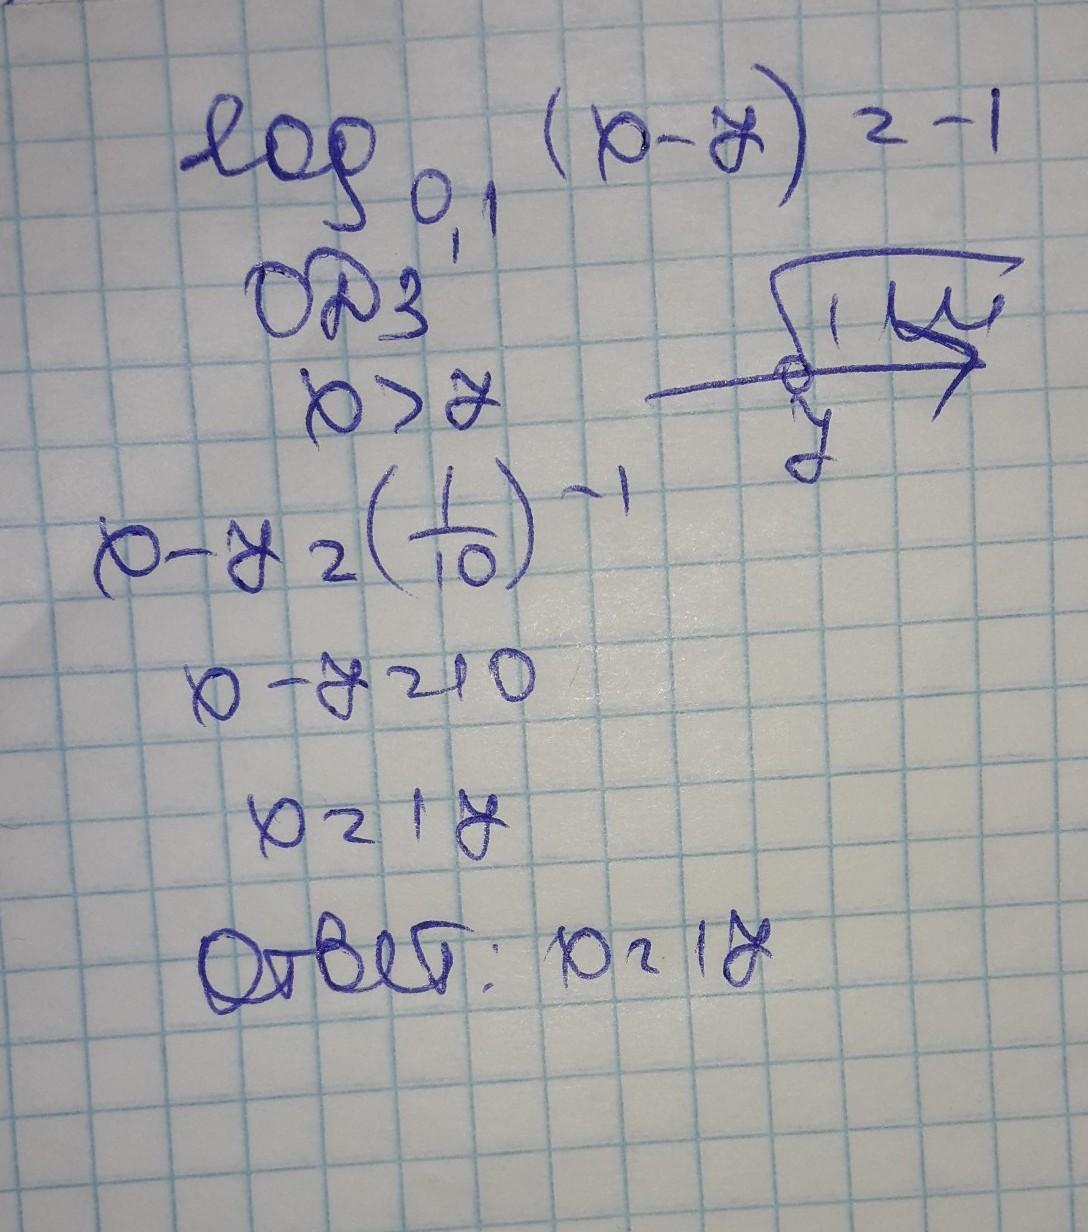 log₀,₁ (x-7) = -1
ОДЗ
x > 7
7
x-7 = (1/10)⁻¹
x-7 = 10
x = 17
Ответ: x = 17